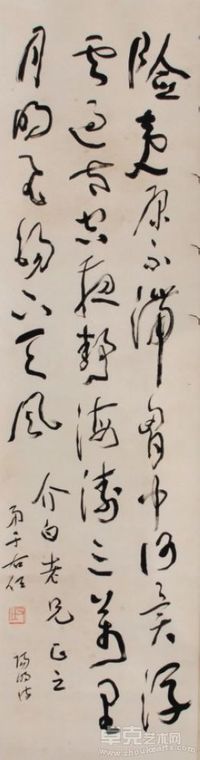 险夷原不滞胸中何异浮
云过太空夜静海涛三万里
月明飞锡下天风
介白老兄正之
弟于右任
阳明诗
卓克艺术网
www.zhuokearts.com